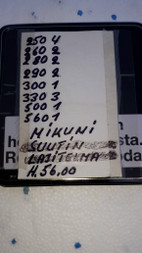 250 4
260 2
280 2
290 2
300 1
330 3
500 1
560 1
MIKUNI
SUUTIN
LAJITELMA
H. 56,00